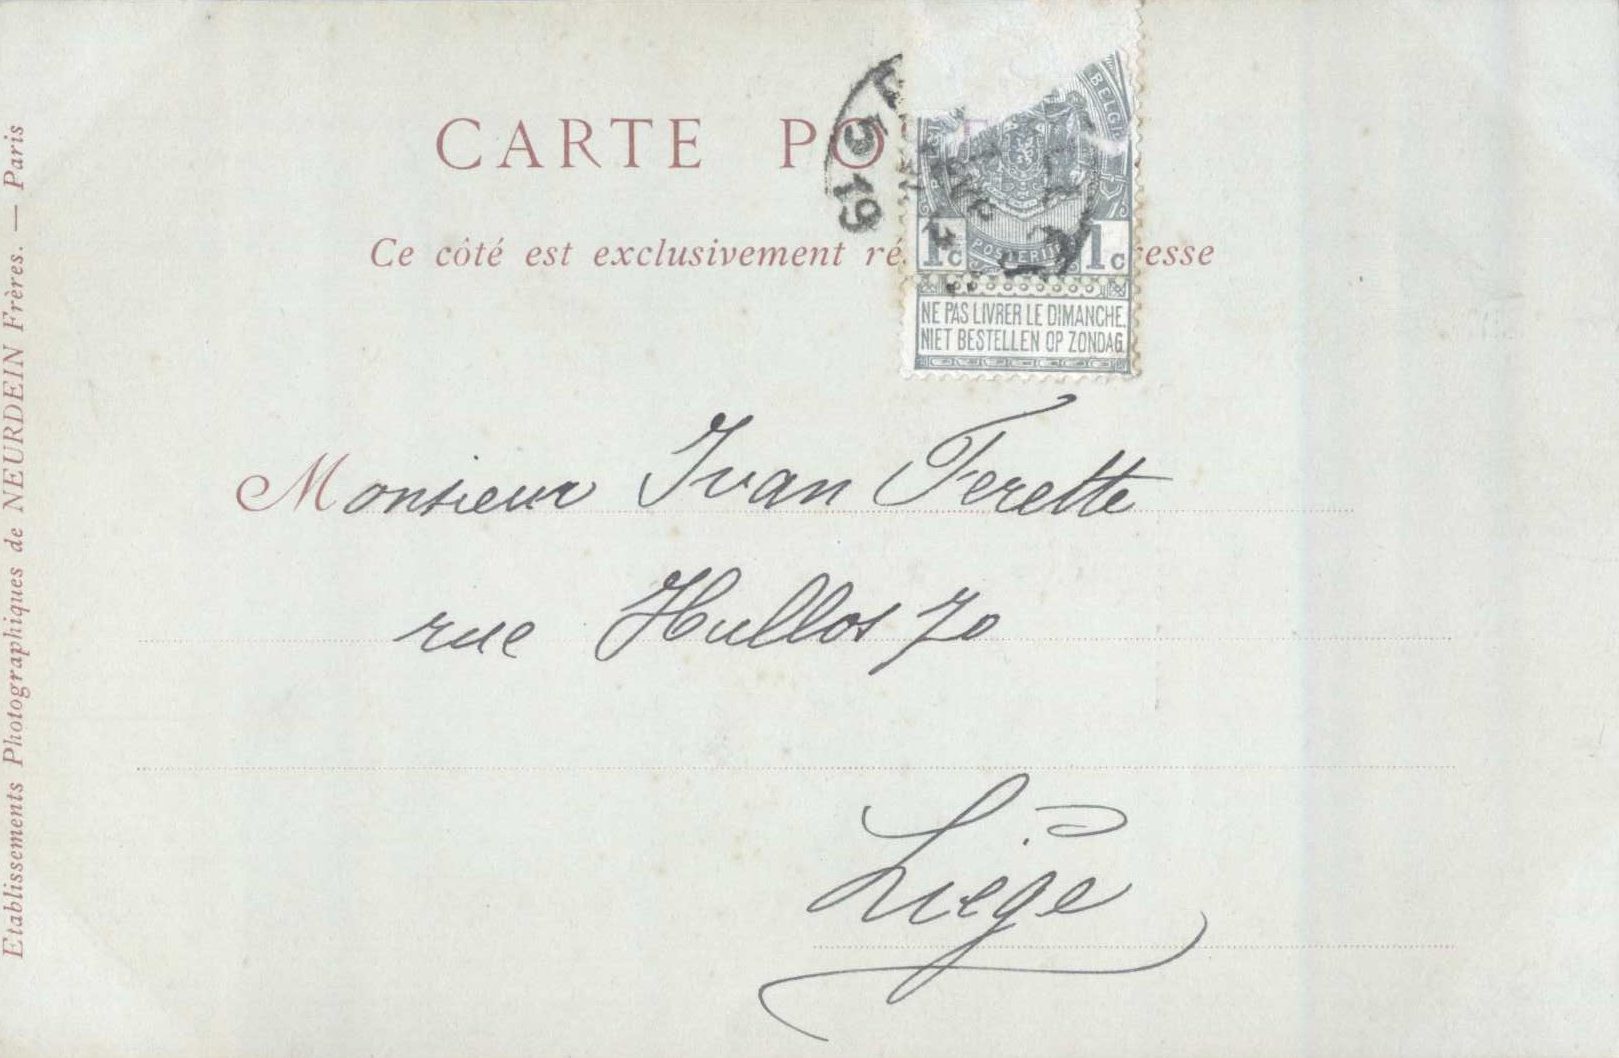 CARTE PO
Ce côté est exclusivement ré esse
5 19
BELGI
POSTERI
1c 1c
NE PAS LIVRER LE DIMANCHE
NIET BESTELLEN OP ZONDAG
Monsieur Ivan Ferette
rue Hullos 70
Liège
Etablissements Photographiques de NEURDEIN Frères. — Paris